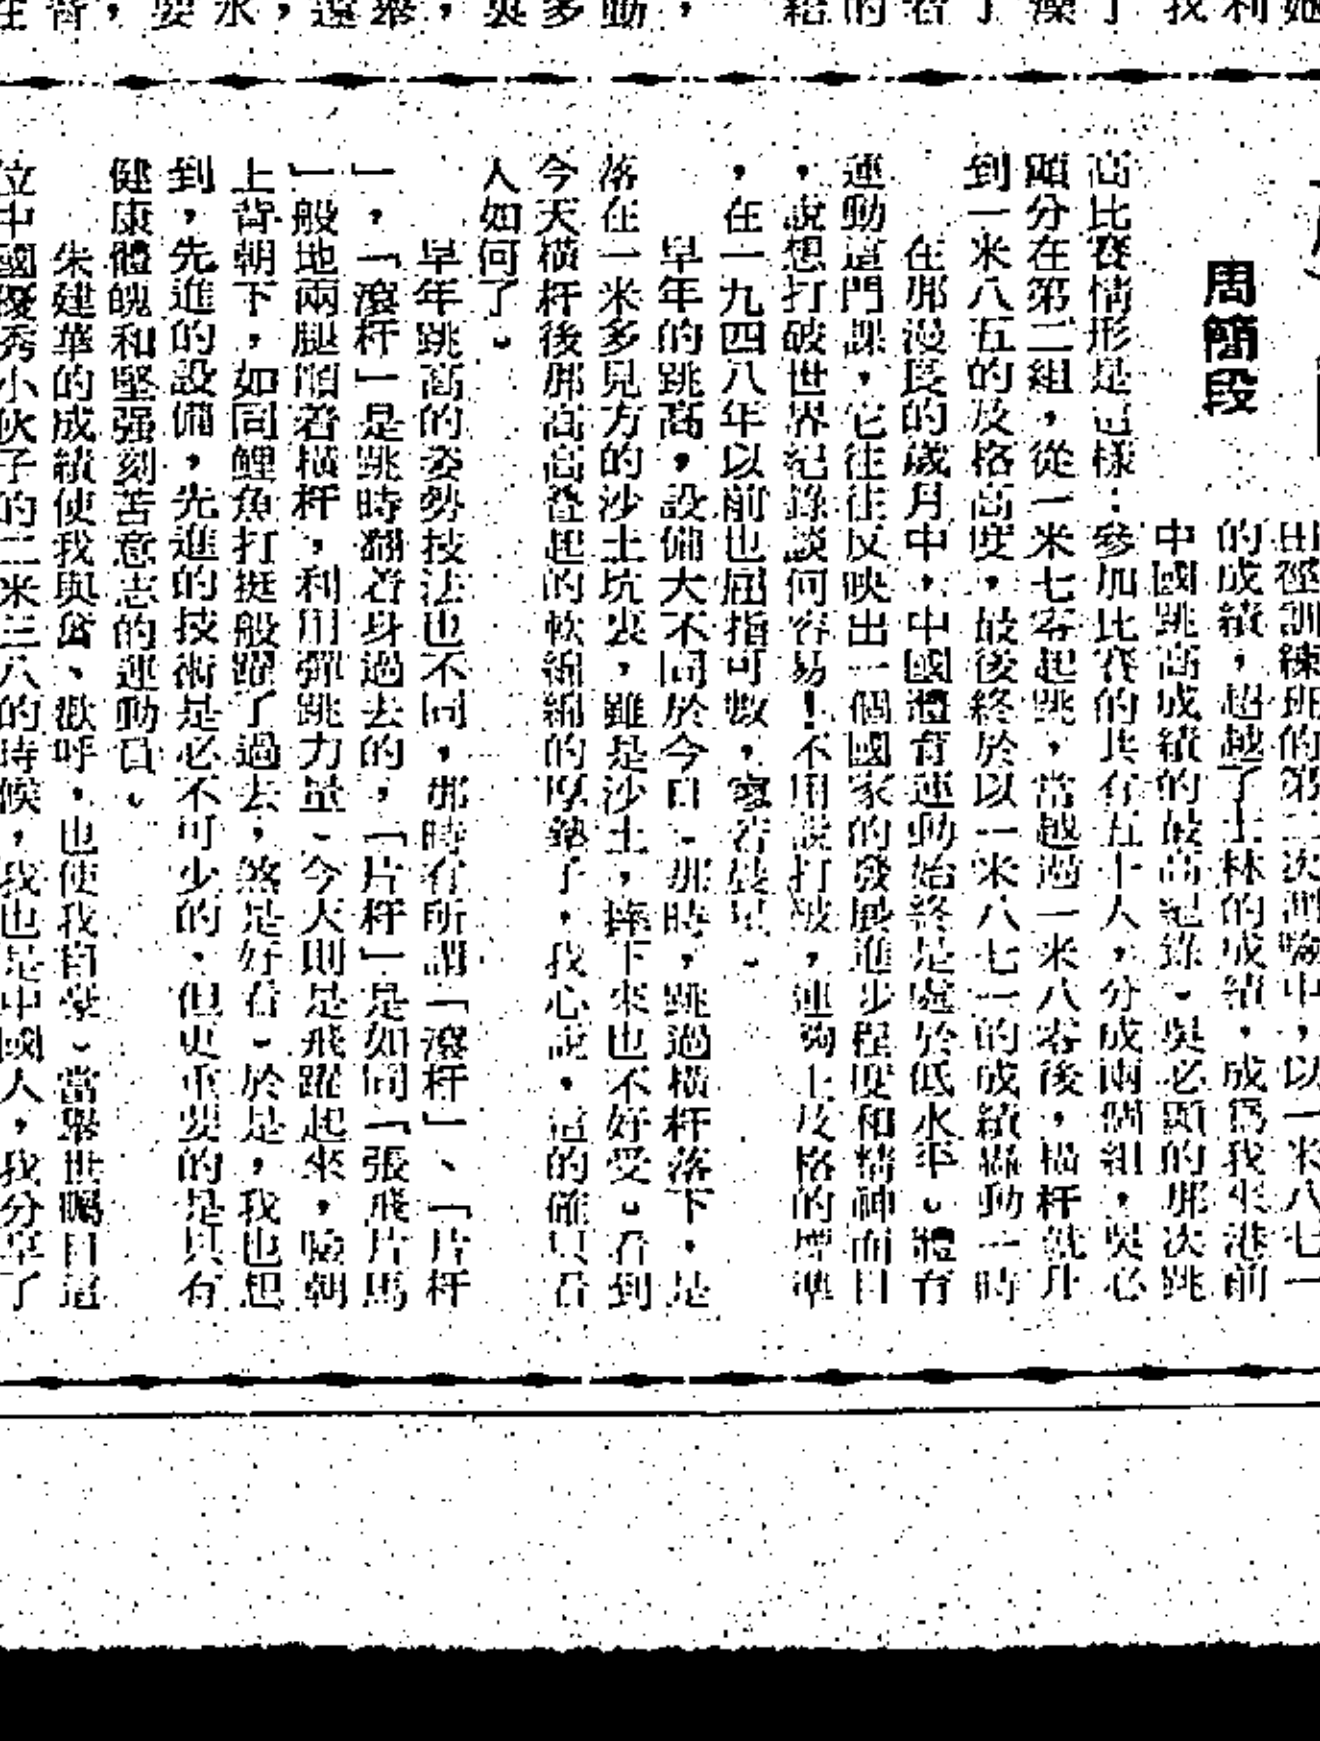 周簡段
田徑訓練班的第二次測驗中，以一米八七一
的成績，超越了士林的成績，成爲我來港前
中國跳高成績的最高紀錄。吳必顯的那次跳
高比賽情形是這樣：參加比賽的共有五十人，分成兩個組，吳必
顯分在第二組，從一米七零起跳，當越過一米八零後，橫杆就升
到一米八五的及格高度，最後終於以一米八七一的成績轟動一時
在那漫長的歲月中，中國體育運動始終是處於低水平。體育
運動這門課，它往往反映出一個國家的發展進步程度和精神面目
，說想打破世界紀錄談何容易！不用說打破，連夠上及格的標準
，在一九四八年以前也屈指可數，寥若晨星。
早年的跳高，設備大不同於今日。那時，跳過橫杆落下，是
落在一米多見方的沙土坑裏，雖是沙土，摔下來也不好受。看到
今天橫杆後那高高叠起的軟綿綿的厚墊子，我心說，這的確只看
人如何了。
早年跳高的姿勢技法也不同，那時有所謂「滾杆」、「片杆
」，「滾杆」是跳時翻着身過去的，「片杆」是如同「張飛片馬
」般地兩腿順着橫杆，利用彈跳力量。今天則是飛躍起來，臉朝
上背朝下，如同鯉魚打挺般躍了過去，煞是好看。於是，我也想
到，先進的設備，先進的技術是必不可少的，但更重要的是具有
健康體魄和堅强刻苦意志的運動員。
朱建華的成績使我興奮、歡呼，也使我自豪。當舉世矚目這
位中國優秀小伙子的二米三八的時候，我也是中國人，我分享了